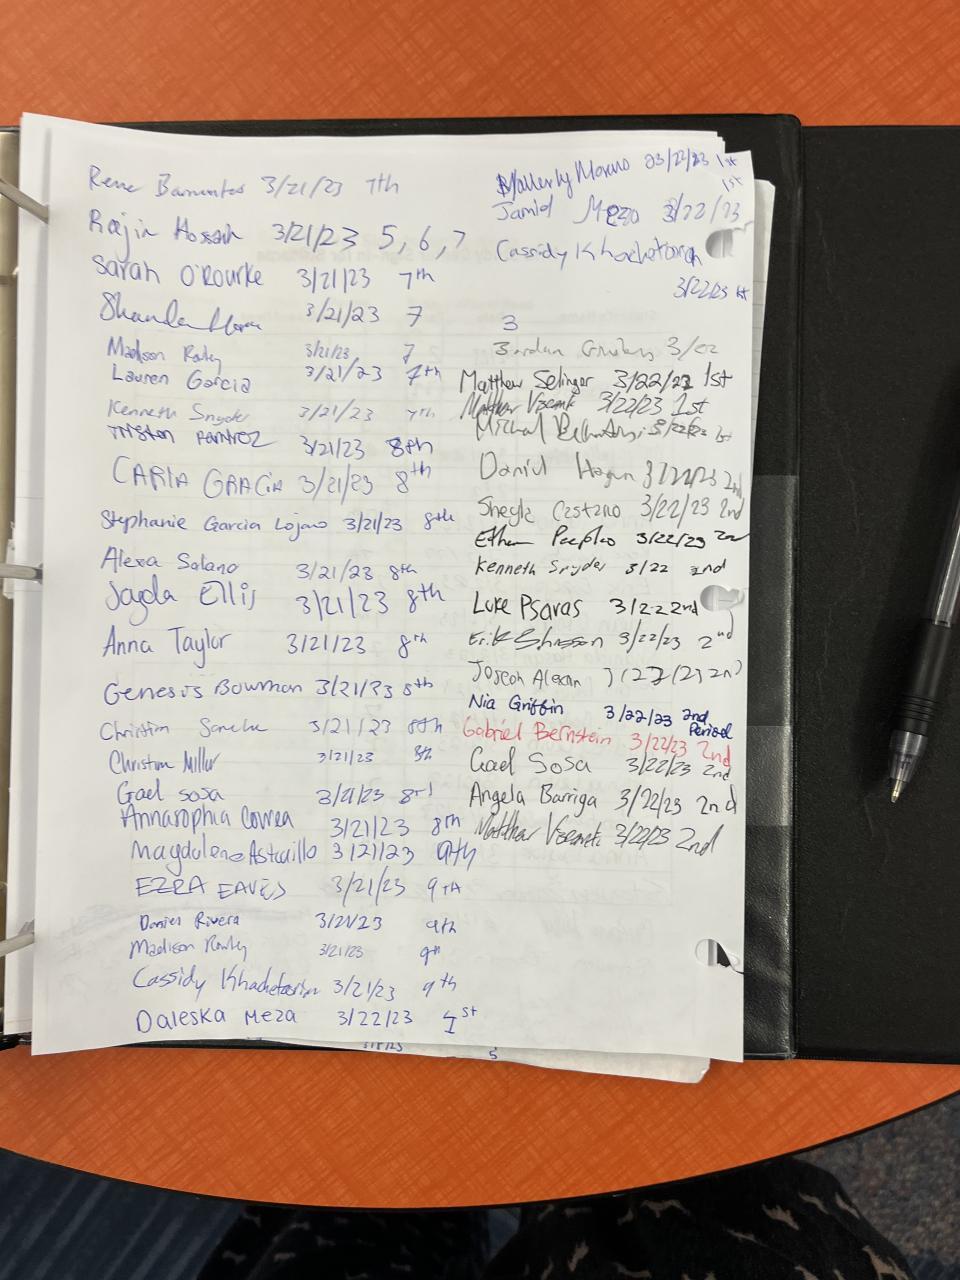 Rene Barrantes 3/21/23 7th
Rajin Hossain 3/21/23 5, 6, 7
Sarah O'Rourke 3/21/23 7th
3/21/23 7
Madison 3/21/23 7
Lauren Garcia 3/21/23 7th
Kenneth Snyder 3/21/23 7th
Tristan Ramirez 3/21/23 8th
CARLA GRACIA 3/21/23 8th
Stephanie Garcia Lojano 3/21/23 8th
Alexa Solano 3/21/23 8th
Jayda Ellis 3/21/23 8th
Anna Taylor 3/21/23 8th
Genesis Bowman 3/21/23 8th
Christian 3/21/23 8th
Christian Miller 3/21/23 8th
Gael Sosa 3/21/23 8th
Annasophia Correa 3/21/23 8th
Magdalene Astudillo 3/21/23 9th
EZRA EAVES 3/21/23 9TH
Daniel Rivera 3/21/23 9th
Madison 3/21/23 9th
Cassidy Khachetourian 3/21/23 9th
Daleska Meza 3/22/23 1st
Mallerly Moreno 03/22/23 1st
1st
Jamid 3/22/23
Cassidy Khachetourian
3/22/23 1st
3
3/22
Matthew Selinger 3/22/23 1st
Matthew 3/22/23 1st
Michael 3/22/23 1st
Daniel Hagen 3/22/23 2nd
Sheyla Castano 3/22/23 2nd
Ethan Peeples 3/22/23 2nd
Kenneth Snyder 3/22 2nd
Luke Psaras 3/22 2nd
Erik 3/22/23 2nd
Joseph 3/22/23 2nd
Nia Griffin 3/22/23 2nd Period
Gabriel Bernstein 3/22/23 2nd
Gael Sosa 3/22/23 2nd
Angela Barriga 3/22/23 2nd
Matthew 3/22/23 2nd
5